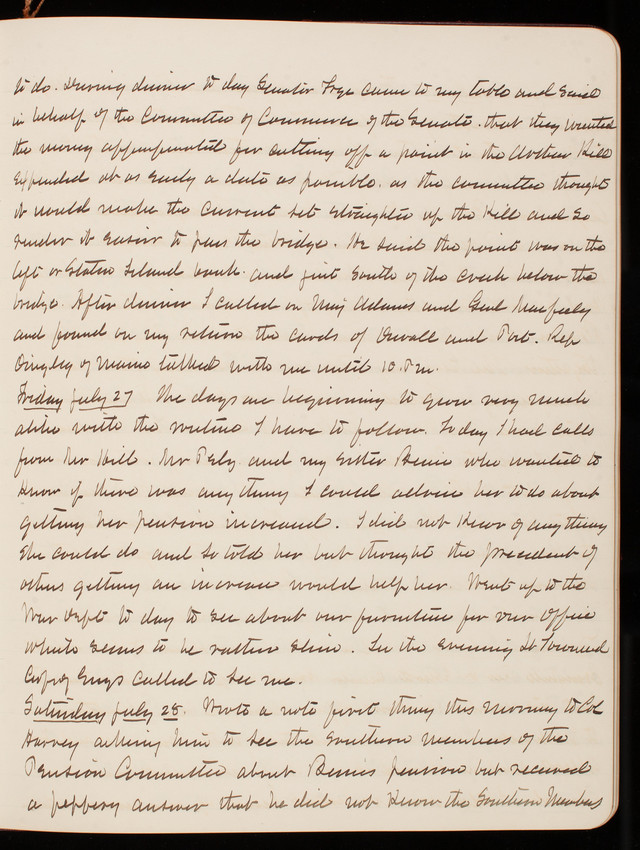 to do. During dinner to day Senator Frye came to my table and said
in behalf of the Committee of Commerce of the Senate. that they wanted
the money appropriated for cutting off a point in the Arthur Kill
expended at as early a date as possible. as the committee thought
it would make the current set straighter up the Kill and so
render it easier to pass the bridge. He said the point was on the
left or Staten Island bank. and just South of the creek below the
bridge. After dinner I called on Maj Adams and Genl Macfeely
and found on my return the cards of Duvall and Post. Rep
Dingley of Maine talked with me until 10. P.m.
Friday July 27 The days are beginning to grow very much
alike with the routine I have to follow. Today I had calls
from Mr Hill. Mr and my sister who wanted to
know if there was anything I could advise her to do about
getting her pension increased. I did not know of anything
She could do and so told her but thought the precedent of
others getting an increase would help her. Went up to the
War Dept to day to see about our furniture for our Office
which seems to be rather slim. In the evening Lt Townsend
Corps of Engrs called to see me.
Saturday July 28. Wrote a note first thing this morning to Col
Harvey asking him to see the Southern members of the
Pension Committee about pension but received
a peppery answer that he did not know the Southern Members